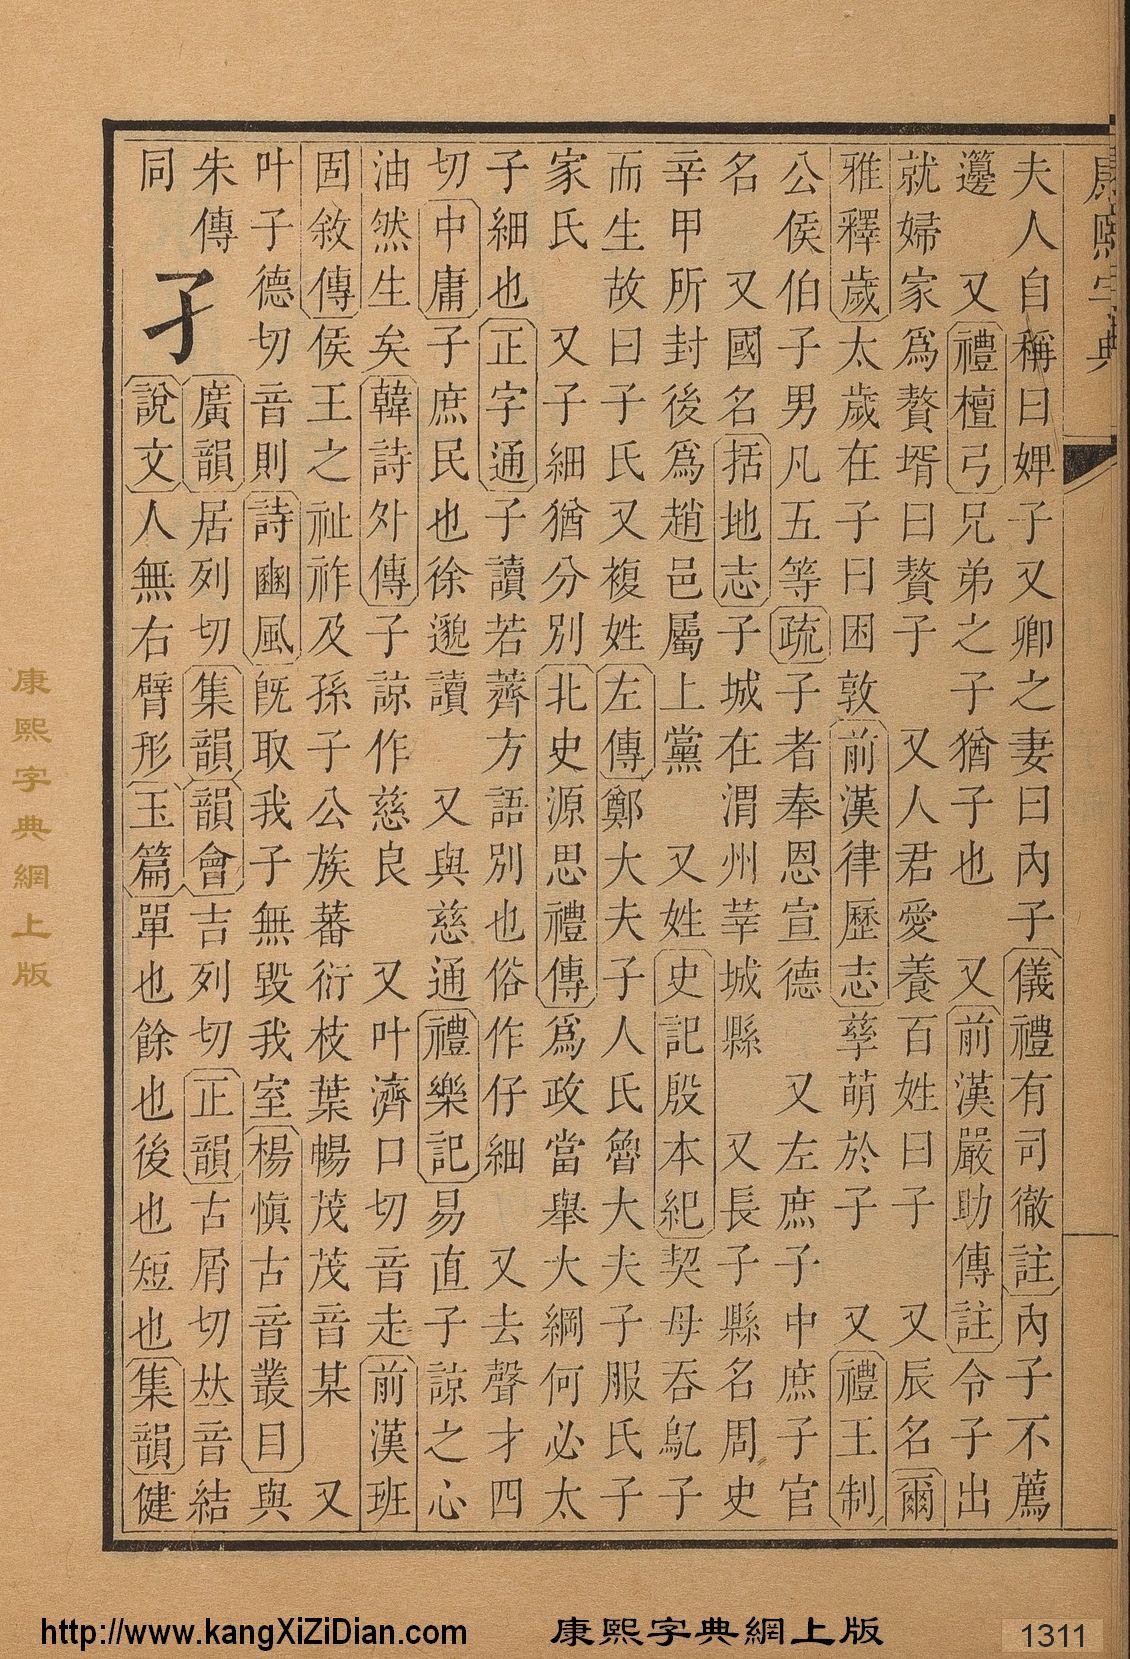 康熙字典
夫人自稱曰婢子又卿之妻曰內子儀禮有司徹註內子不薦
籩 又禮檀弓兄弟之子猶子也 又前漢嚴助傳註令子出
就婦家爲贅壻曰贅子 又人君愛養百姓曰子 又辰名爾
雅釋歲太歲在子曰困敦前漢律歷志孳萌於子 又禮王制
公侯伯子男凡五等疏子者奉恩宣德 又左庶子中庶子官
名 又國名括地志子城在渭州莘城縣 又長子縣名周史
辛甲所封後爲趙邑屬上黨 又姓史記殷本紀契母吞鳦子
而生故曰子氏又複姓左傳鄭大夫子人氏魯大夫子服氏子
家氏 又子細猶分別北史源思禮傳爲政當舉大綱何必太
子細也正字通子讀若薺方語別也俗作仔細 又去聲才四
切中庸子庶民也徐邈讀 又與慈通禮樂記易直子諒之心
油然生矣韓詩外傳子諒作慈良 又叶濟口切音走前漢班
固敘傳侯王之祉祚及孫子公族蕃衍枝葉暢茂茂音某 又
叶子德切音則詩豳風旣取我子無毀我室楊愼古音叢目與
朱傳
同
孑
廣韻居列切集韻韻會吉列切正韻古屑切𠀤音結
說文人無右臂形玉篇單也餘也後也短也集韻健
康熙字典網上版
http://www.kangXiZiDian.com 康熙字典網上版 1311